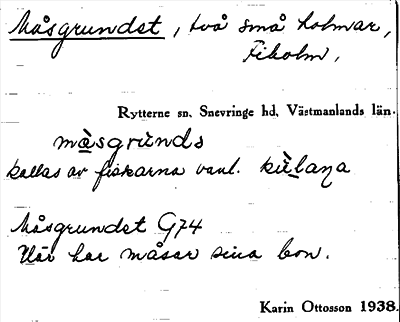 Måsgrundet, två små holmar,
Fiholm,
Rytterne sn. Snevringe hd. Västmanlands län.
mà̱sgrùnds
kallas av fiskarna vanl. kù̱laŋa
Måsgrundet G74
Där har måsar sina bon.
Karin Ottosson 1938.